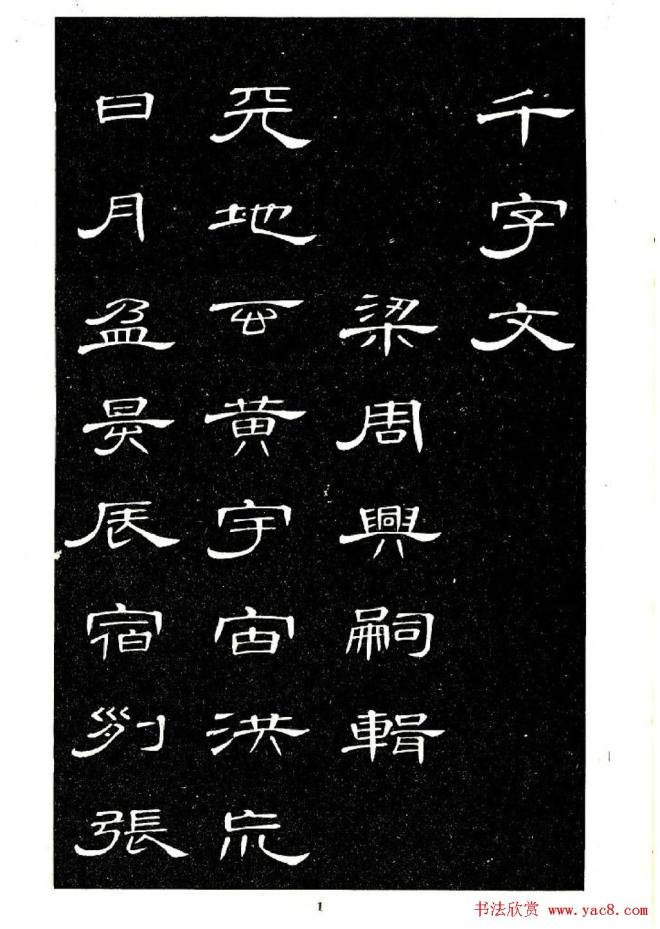 千字文
梁周興嗣輯
天地玄黄宇宙洪荒
日月盈昃辰宿列張
1
书法欣赏 www.yac8.com